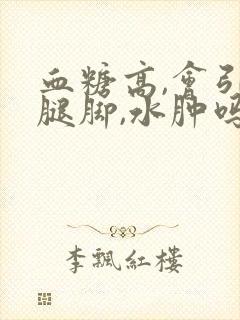 血糖高,會引
腿脚,水肿吗
李飄紅樓